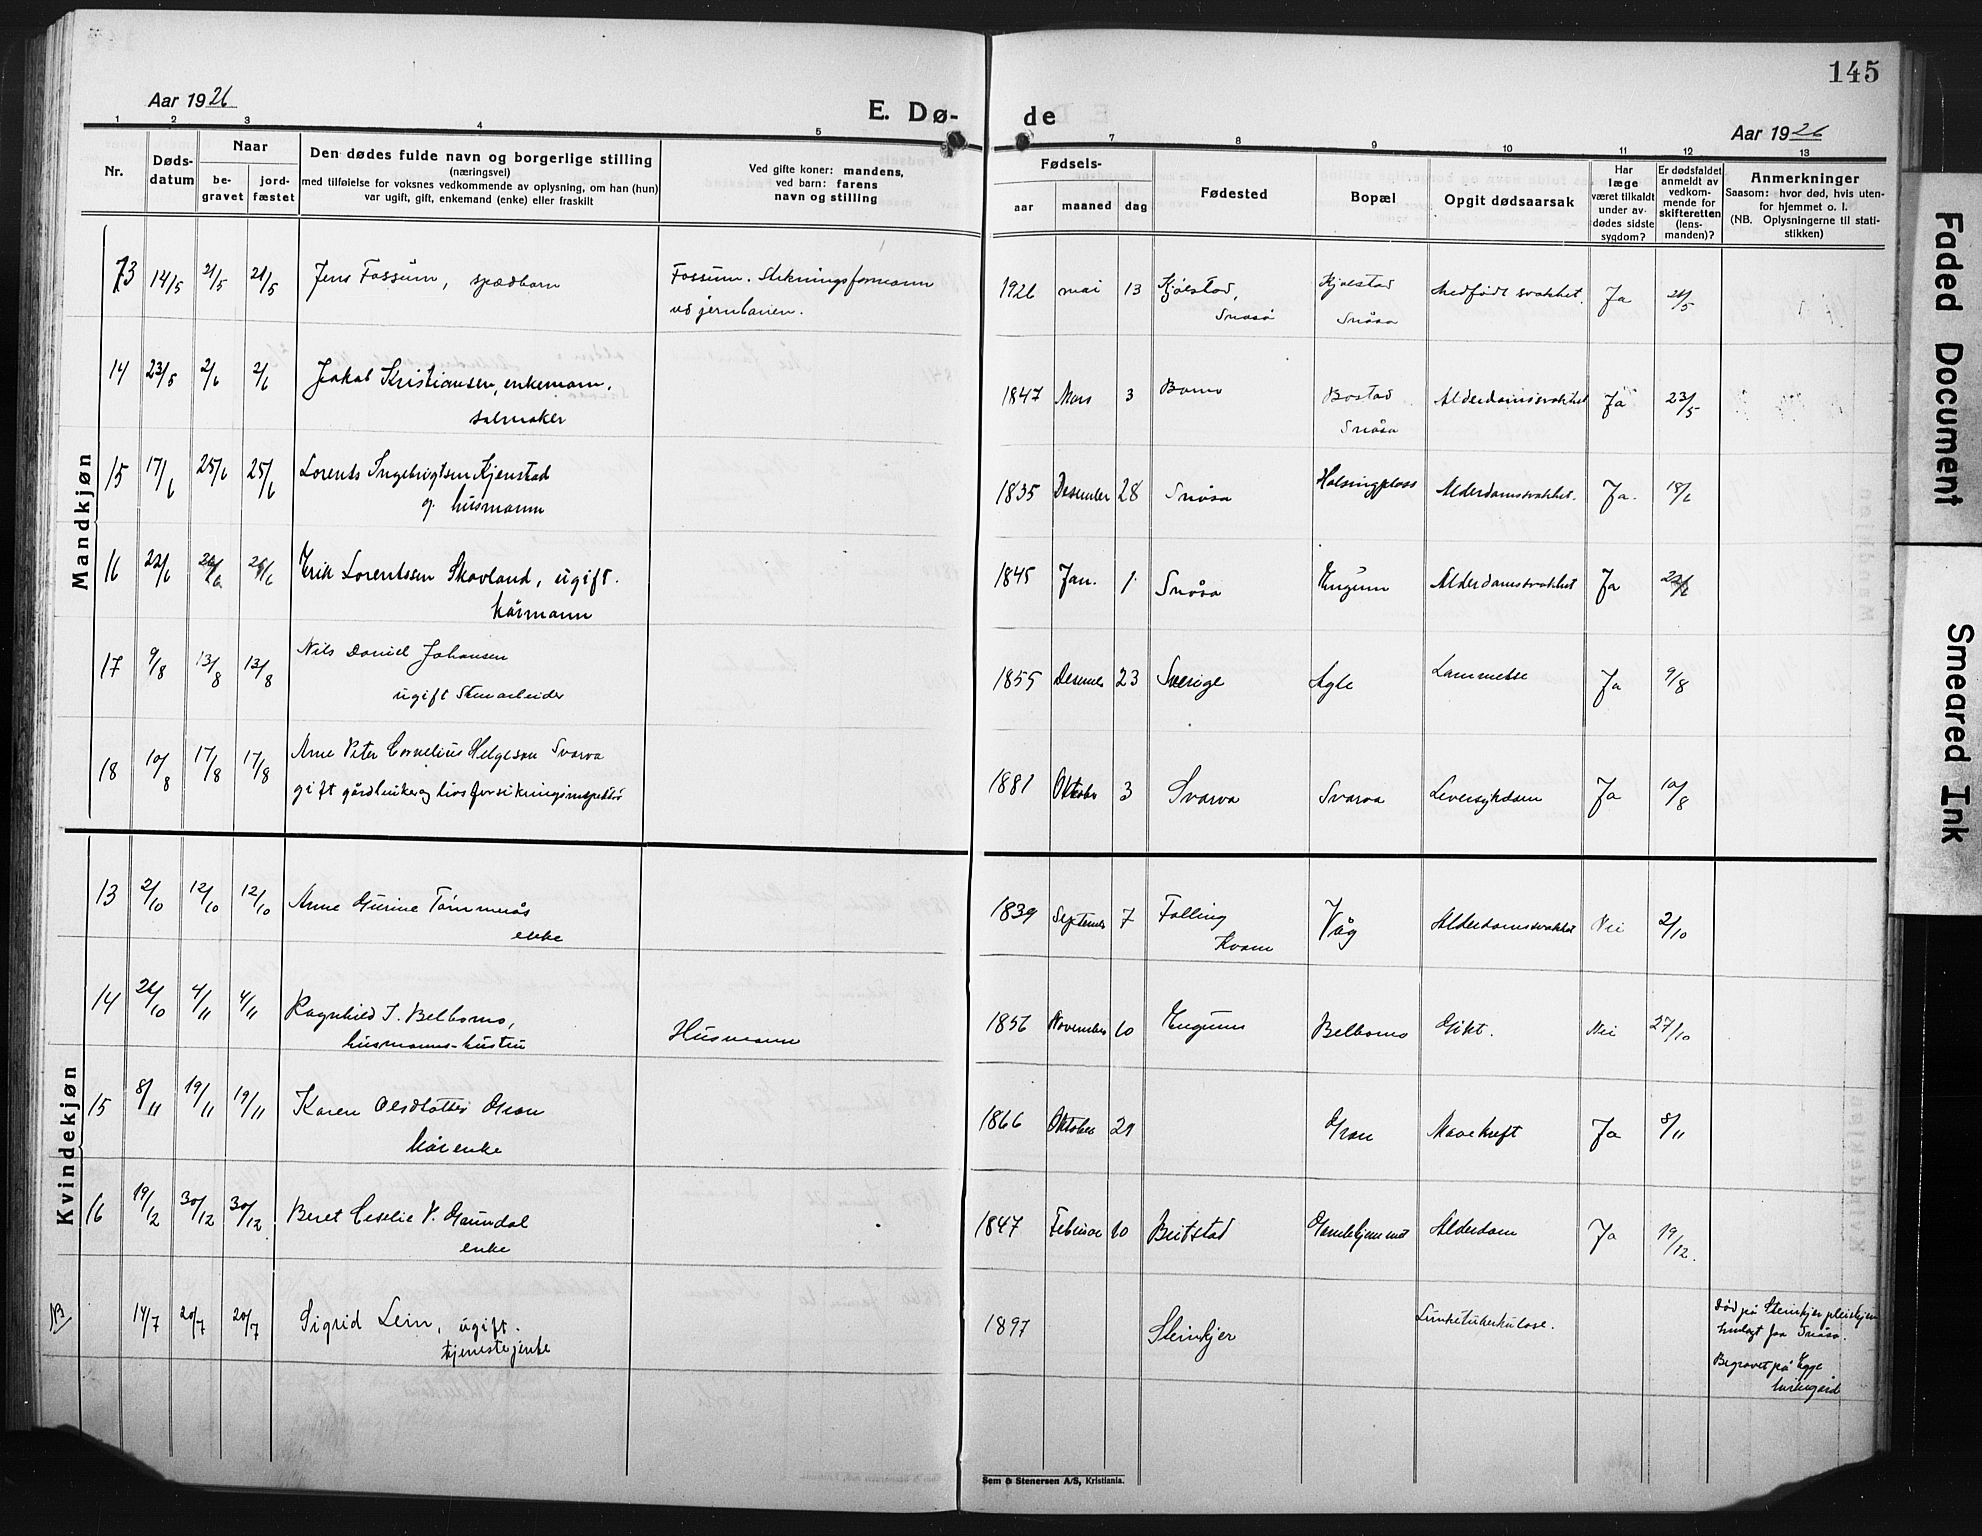 145
Aar 1926
E. Dø-
de
Aar 1926
1 2 3 4 5 7 8 9 10 11 12 13
Nr.
Døds-
datum
Naar
be-
gravet
jord-
fæstet
Den dødes fulde navn og borgerlige stilling
(næringsvei)
med tilføielse for voksnes vedkommende av oplysning, om han (hun)
var ugift, gift, enkemand (enke) eller fraskilt
Ved gifte koner: mandens,
ved barn: farens
navn og stilling
Fødsels-
aar maaned dag
Fødested
Bopæl
Opgit dødsaarsak
Har
læge
været tilkaldt
under av-
dødes sidste
sygdom?
Er dødsfaldet
anmeldt av
vedkom-
mende for
skifteretten
(lens-
manden)?
Anmerkninger
Saasom: hvor død, hvis uten-
for hjemmet o. l.
(NB. Oplysningerne til stati-
stikken)
Mandkjøn
73 14/5 21/5 21/5 Jens Fossum, spædbarn Fossum. Stikningsformann
ved jernbanen.
1926 mai 13 Kjølstad, Snåsa Kjølstad Snåsa Medfødt svakhet. Ja 21/5
14 23/5 2/6 2/6 Jakob Kristiansen, enkemann,
salmaker
1847 Mars 3 Bomo Bostad Snåsa Alderdomssvakhet Ja 23/5
15 17/6 25/6 25/6 Lorents Ingebrigtsen Kjenstad
g. husmann
1835 Desember 28 Snåsa Holsingplass Alderdomssvakhet. Ja. 18/6
16 22/6 26/6 26/6 Erik Lorentssen Skavland, ugift.
kårmann
1845 Jan. 1. Snåsa Engum Alderdomssvakhet Ja 22/6
17 9/8 13/8 13/8 Nils Daniel Johansen
ugift Stenarbeider
1855 Desember 23 Sverige Agle Lammelse Ja 9/8
18 10/8 17/8 17/8 Arne Peter Cornelius Helgesen Svarva
gift gårdbruker og livsforsikringsinspektør
1881 Oktober 3 Svarva Svarva Leversykdom Ja 10/8
Kvindekjøn
13 2/10 12/10 12/10 Anne Gurine Tømmerås
enke
1839 September 7 Følling Kvam Våg Alderdomssvakhet Nei 2/10
14 26/10 4/11 4/11 Ragnhild J. Belbomo,
husmanns-hustru Husmann
1856 November 10 Engum Belbomo Gikt. Nei 27/10
15 8/11 19/11 19/11 Karen Olsdotter Gran
kårenke
1866 Oktober 29 Gran Mavekreft Ja 8/11
16 19/12 30/12 30/12 Beret Ceselie P. Grundal
enke
1847 Februar 10 Beitstad Gamlehjemmet Alderdom Ja 19/12.
NB 14/7 20/7 20/7 Sigrid Lein, ugift.
tjenestejente
1897 Steinkjer Lungetuberkulose.
Død på Steinkjer pleiehjem
innlagt fra Snåsa.
Begravet på Egge
kirkegård
Sem & Stenersen A/S, Kristiania.
Faded Document
Smeared Ink